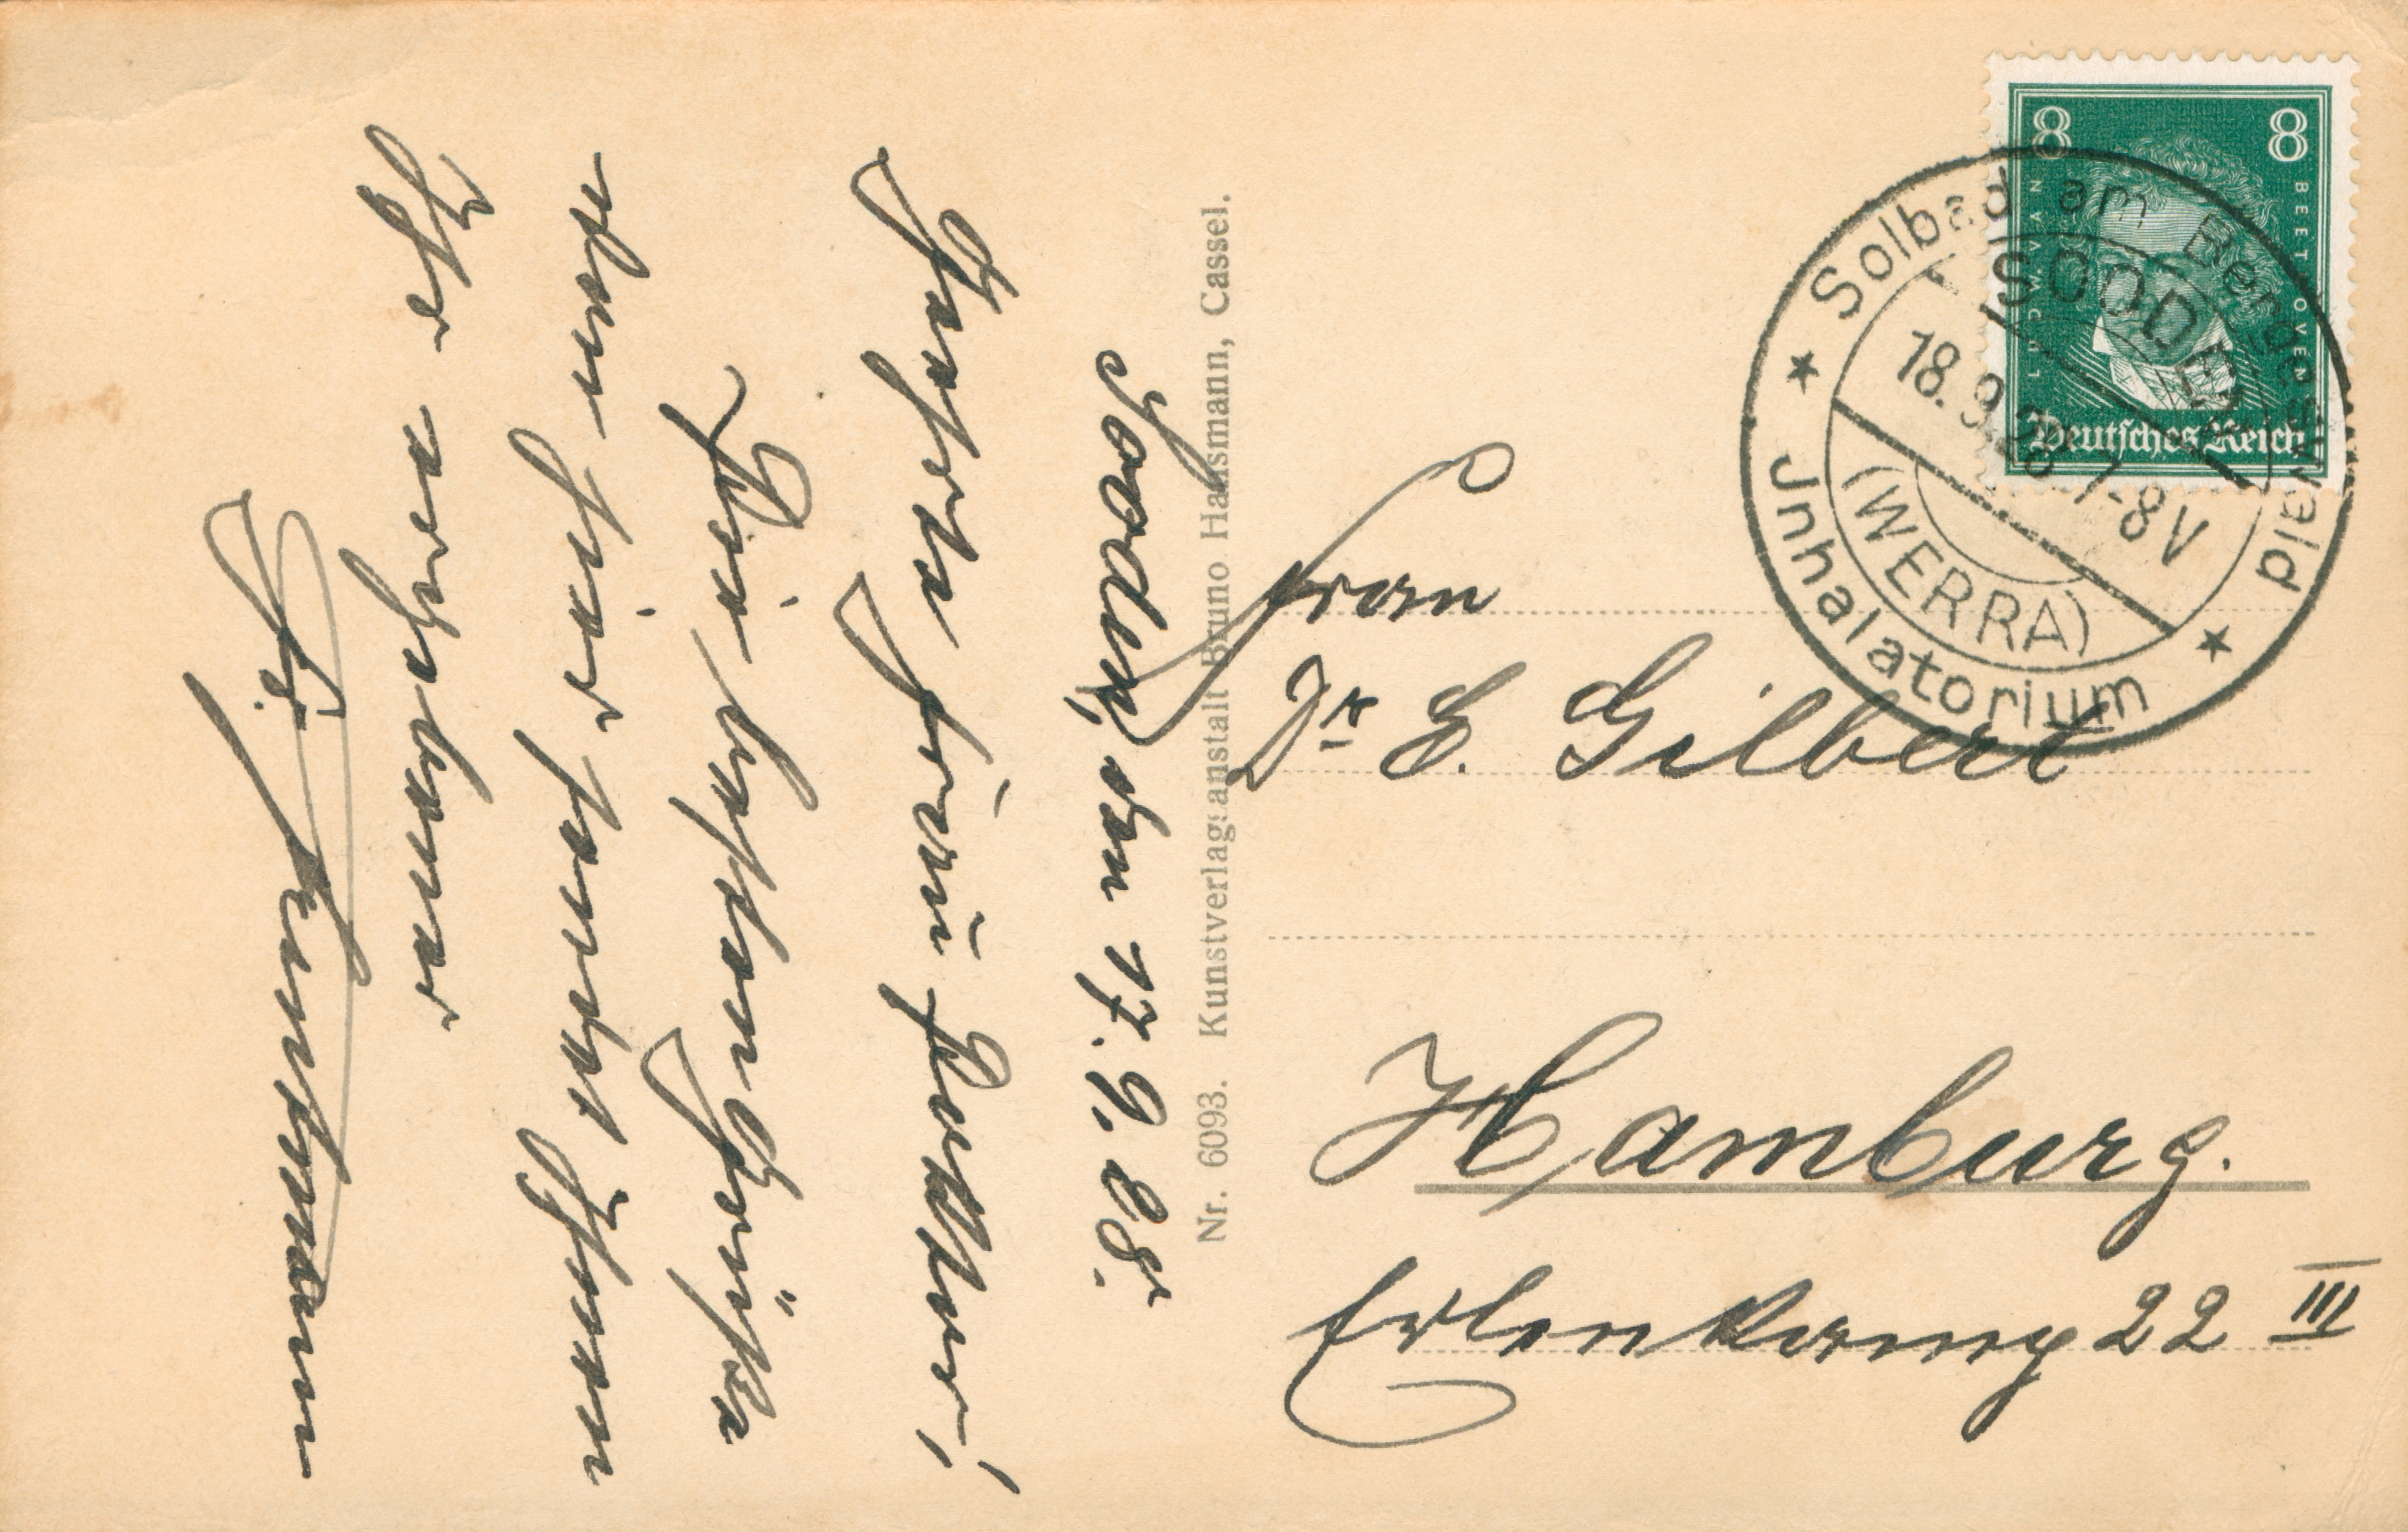 Sooden, den 17. 9. 28.
Geehrte Frau Doktor!
Die besten Grüße
von hier sendet Ihnen
Ihr ergebener
Fr.
Nr. 6093. Kunstverlagsanstalt Bruno Hansmann, Cassel.
8 8
LUDWIG VAN BEETHOVEN
Deutsches Reich
Solbad am Bergeswald
SOODEN
18.9.28 7-8V
(WERRA)
Inhalatorium
Frau
Dr. E. Gilbert
Hamburg.
Erlenkamp 22 III